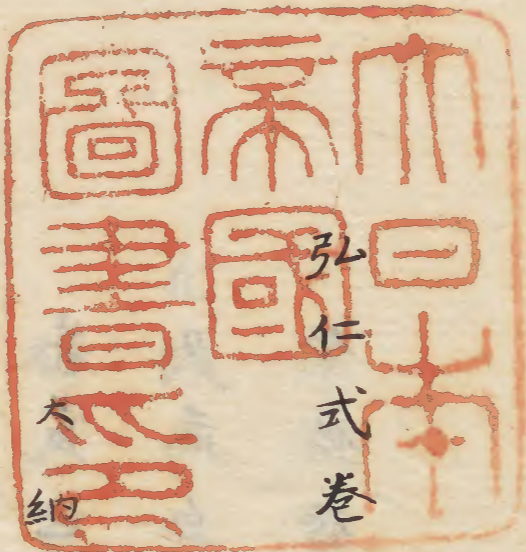 大日本
帝國
圖書之印
弘仁式卷
大納